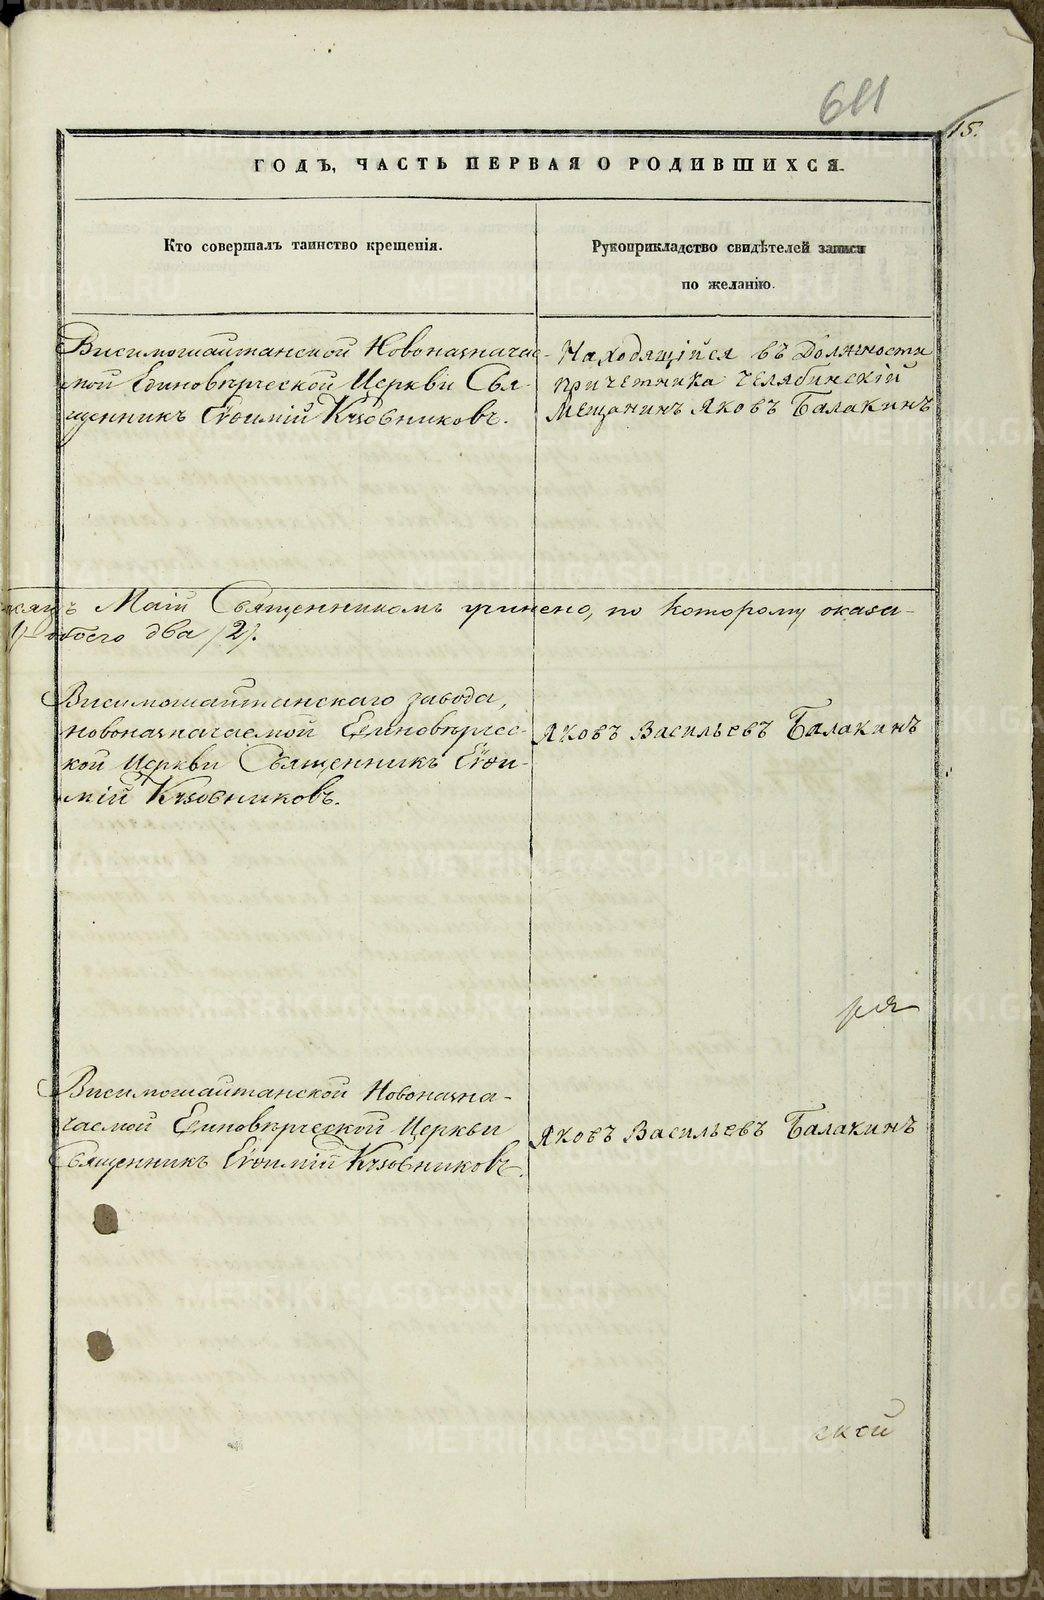 611
15.
ГОДЪ, ЧАСТЬ ПЕРВАЯ О РОДИВШИХСЯ.
Кто совершалъ таинство крещенія.
Рукоприкладство свидѣтелей записи
по желанію.
Висимошайтанской Новоназначае-
мой Единовѣрческой Церкви Свя-
щенникъ Евѳимій
Находящійся въ Должности
причетника Челябинскій
Мещанинъ Яковъ Балакинъ
Маій Священникомъ учинено, по которому оказа-
обоего два /2/.
Висимошайтанскаго завода,
новоназначаемой Единовѣрчес-
кой Церкви Священникъ Евѳи-
мій
Яковъ Васильевъ Балакинъ
Висимошайтанской Новоназна-
чаемой Единовѣрческой Церкви
Священникъ Евѳимій
Яковъ Васильевъ Балакинъ
ской
METRIKI.GASO-URAL.RU